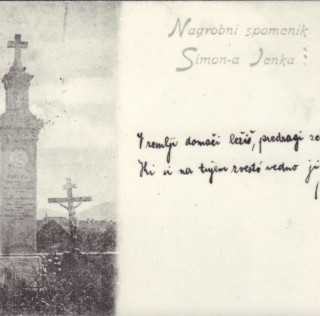 Nagrobni spomenik
Simon-a Jenka
V zemlji domači ležiš, predragi
Ki si na tujem zvestó vedno